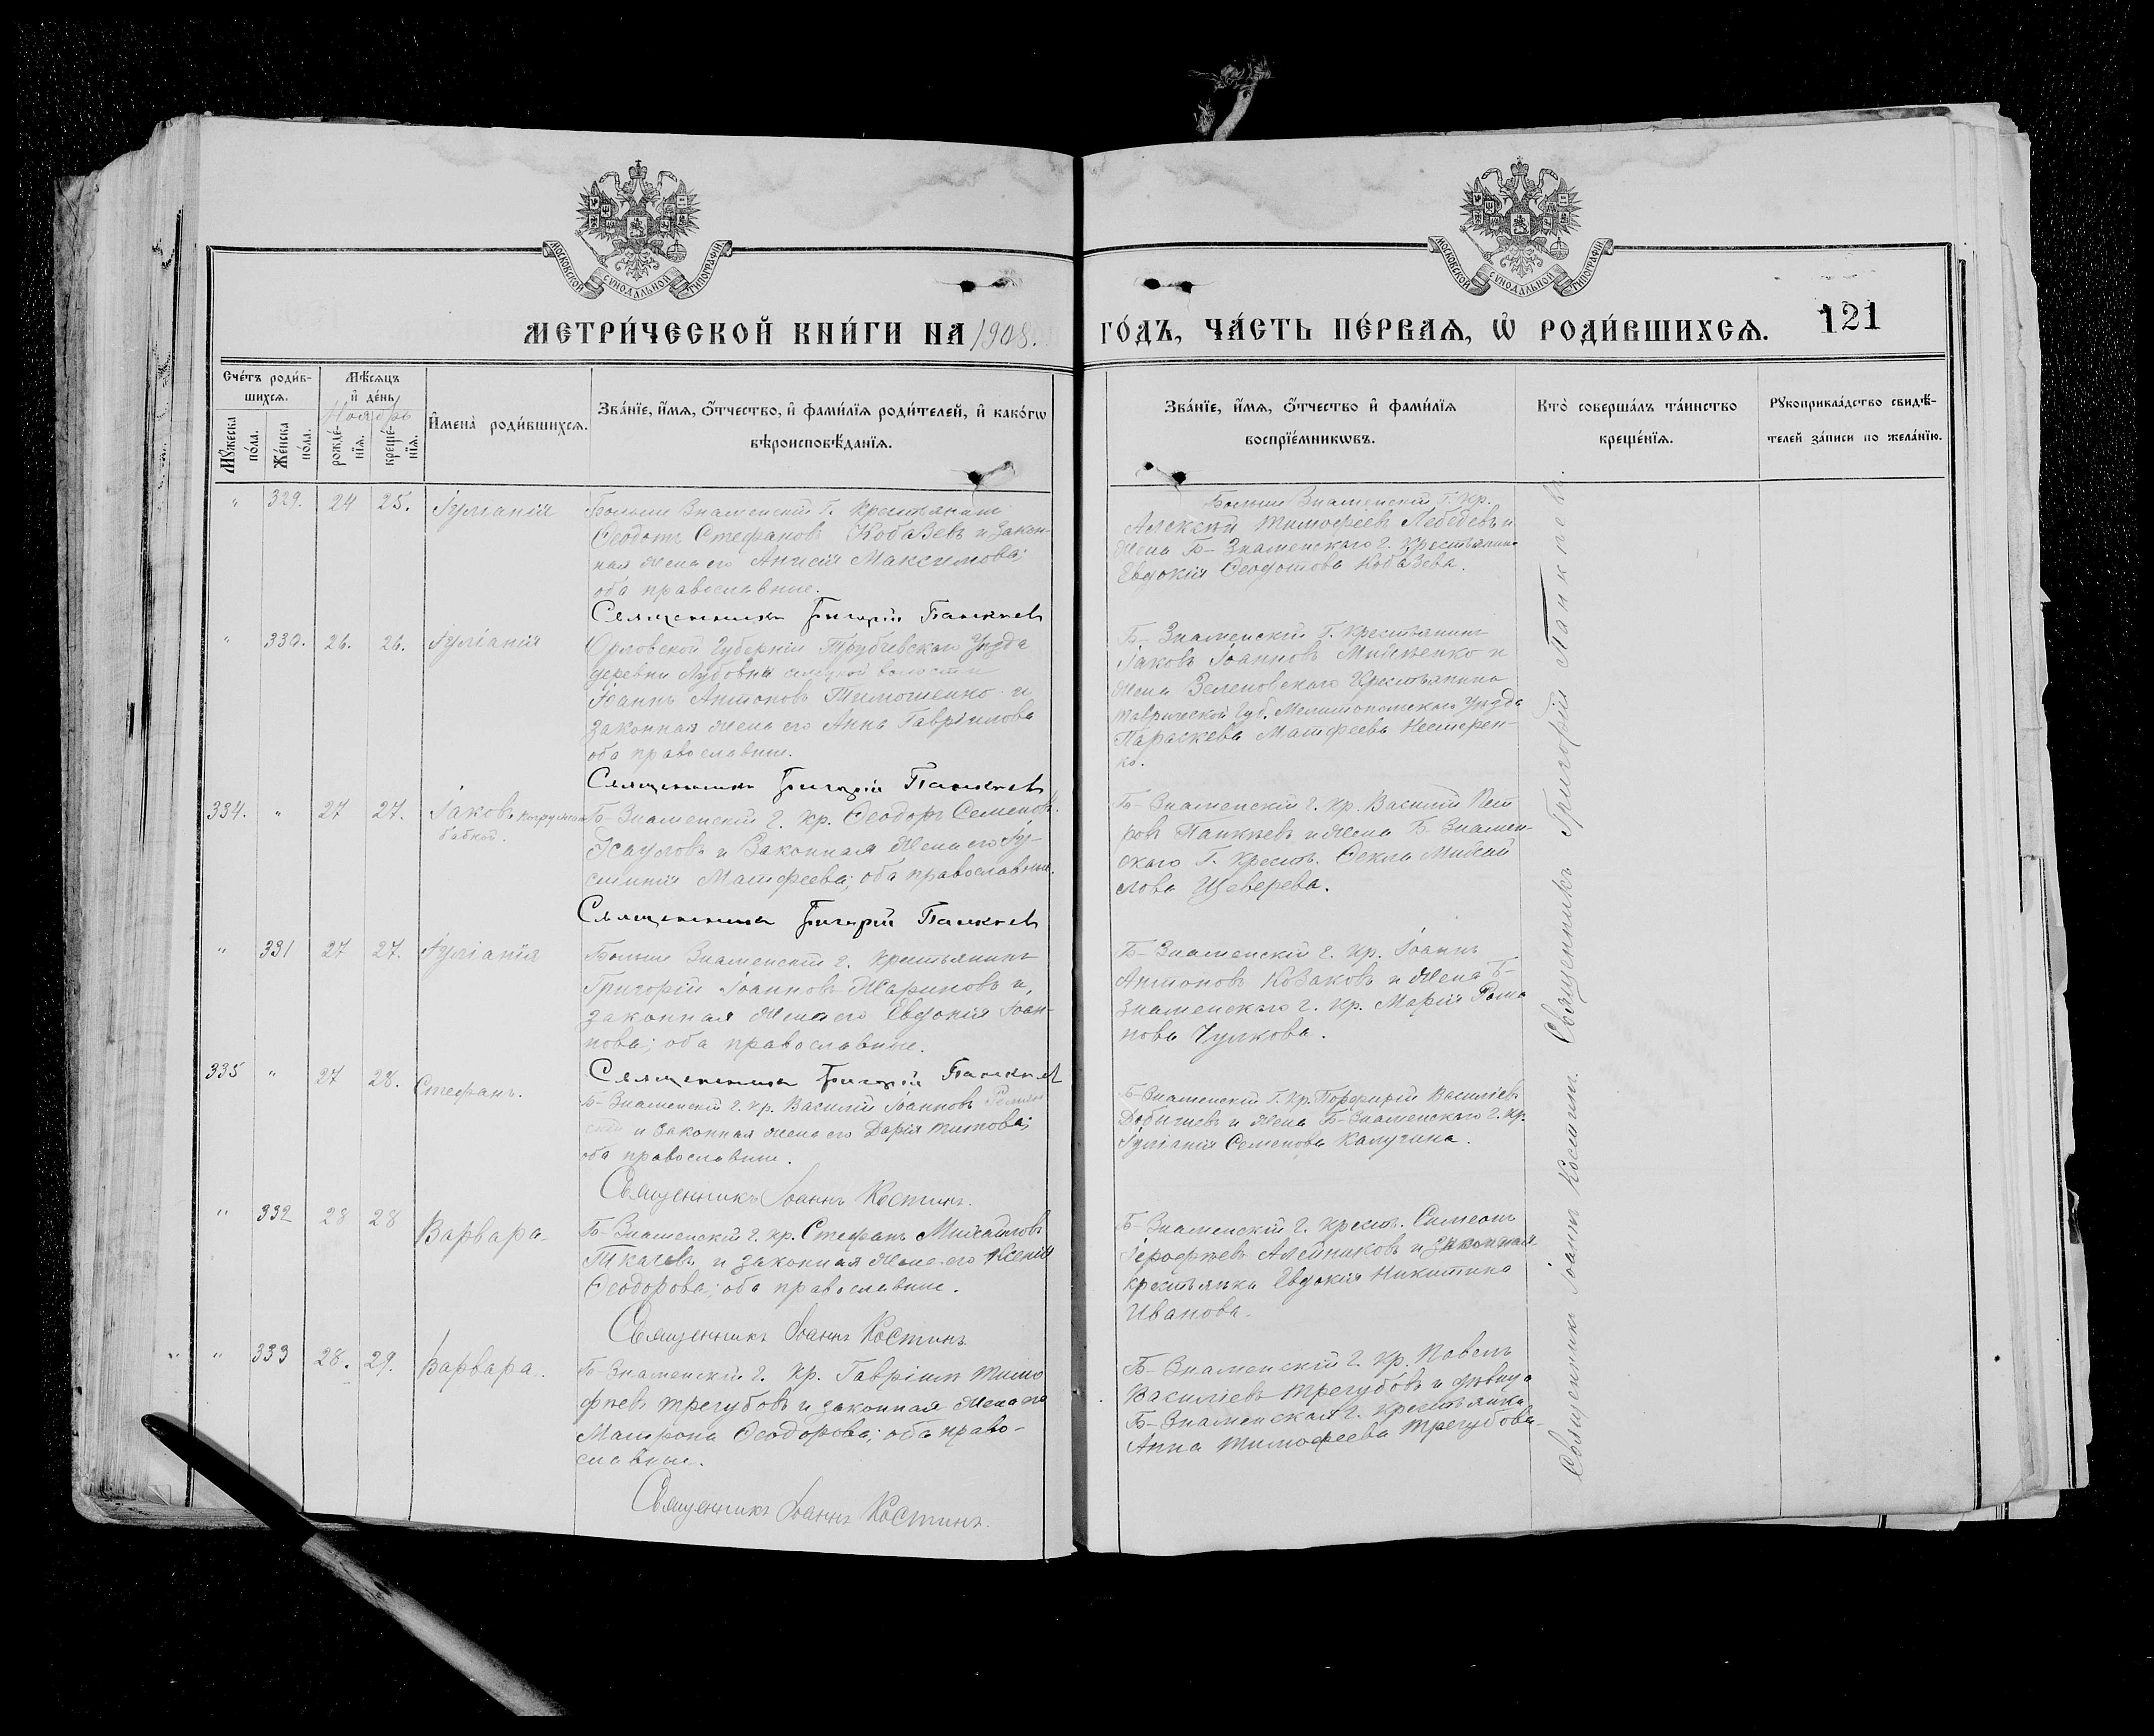 МОСКОВСКОЙ СѴНОДАЛЬНОЙ ТИПОГРАФІИ
МОСКОВСКОЙ СѴНОДАЛЬНОЙ ТИПОГРАФІИ
МЕТРИ́ЧЕСКОЙ КНИ́ГИ НА 1908. ГО́ДЪ, ЧА́СТЬ ПЕ́РВАЯ, Ѡ҆ РОДИ́ВШИХСЯ.
121
Сче́тъ роди́в-
шихся.
Мꙋжеска по́ла.
Же́нска по́ла.
Мѣ́сяцъ
и҆ де́нь
Ноябрь
рожде́-
нїя.
креще́-
нїя.
И҆мена̀ роди́вшихся.
Зва́нїе, и҆́мя, ѻ҆́тчество, и҆ фами́лїя роди́телей, и҆ како́гѡ
вѣроисповѣ́данїя.
Зва́нїе, и҆́мя, ѻ҆́тчество и҆ фами́лїя
воспрїе́мникѡвъ.
Кто̀ соверша́лъ та́инство
креще́нїя.
Рꙋкоприкла́дство свидѣ́-
телей за́писи по жела́нїю.
" 329. 24 25. Іуліанія
Больше Знаменскій Г. крестьянинъ
Ѳеодотъ Стефановъ Кобазевъ и закон-
ная жена его Анисія Максимова;
оба православные.
Священникъ Григорій Панкѣевъ
Больше Знаменскій Г. Кр.
Алексѣй Тимофеевъ Лебедевъ и
жена Б-Знаменскаго г. крестьянина
Евдокія Ѳеодотова Кобазева.
" 330. 26. 26. Іуліанія
Орловской Губерніи Трубчевскаго Уѣзда
деревни волости
Іоаннъ Антоновъ Тимошенко и
законная жена его Анна Гавріилова
оба православные.
Священникъ Григорій Панкѣевъ
Б-Знаменскій Г. Крестьянинъ
Іаковъ Іоанновъ и
жена Зеленовскаго Крестьянина
Таврической Губ. Мелитопольскаго Уѣзда
Параскева Матфеева Нестерен-
ко.
334. " 27 27. Іаковъ погружен
бабкой.
Б-Знаменскій г. кр. Ѳеодоръ Семеновъ
Эсауловъ и Законная жена его Іу-
стинія Матфеева; оба православные.
Священникъ Григорій Панкѣевъ
Б-Знаменскій г. кр. Василій Пет
ровъ Панкѣевъ и жена Б-Знамен-
скаго Г. Крест. Ѳекла Михай
лова Щеверева.
" 331 27 27. Іуліанія
Больше Знаменскій г. крестьянинъ
Григорій Іоанновъ Жариновъ и
законная жена его Евдокія Іоан-
нова; оба православные.
Священникъ Григорій Панкѣевъ
Б-Знаменскій г. кр. Іоаннъ
Антоновъ Козаковъ и жена Б-
Знаменскаго г. кр. Марія Рома
нова Чулкова.
335 " 27 28. Стефанъ.
Б-Знаменскій г. кр. Василій Іоанновъ
и законная жена его Дарія Титова;
оба православные.
Священникъ Іоаннъ Костинъ.
Б-Знаменскій Г. Кр. Порфирій Василіевъ
и жена Б-Знаменскаго г. кр.
Іуліанія Семенова Калугина.
" 332 28 28 Варвара.
Б-Знаменскій г. кр. Стефанъ Михайловъ
Ткачевъ и законная жена его Ксенія
Ѳеодорова; оба православные.
Священникъ Іоаннъ Костинъ
Б-Знаменскій г. крест. Симеонъ
Іерофѣевъ Алейниковъ и законная
крестьянка Евдокія Никитина
Иванова.
" 333 28. 29. Варвара.
Б-Знаменскій г. кр. Гавріилъ Тимо
фѣевъ Трегубовъ и законная жена его
Матрона Ѳеодорова; оба право-
славные.
Священникъ Іоаннъ Костинъ.
Б-Знаменскій г. кр. Павелъ
Василіевъ Трегубовъ и дѣвица
Б-Знаменская г. крестьянка
Анна Тимофеева Трегубова.
Священникъ Григорій Панкѣевъ.
Священникъ Іоаннъ Костинъ.